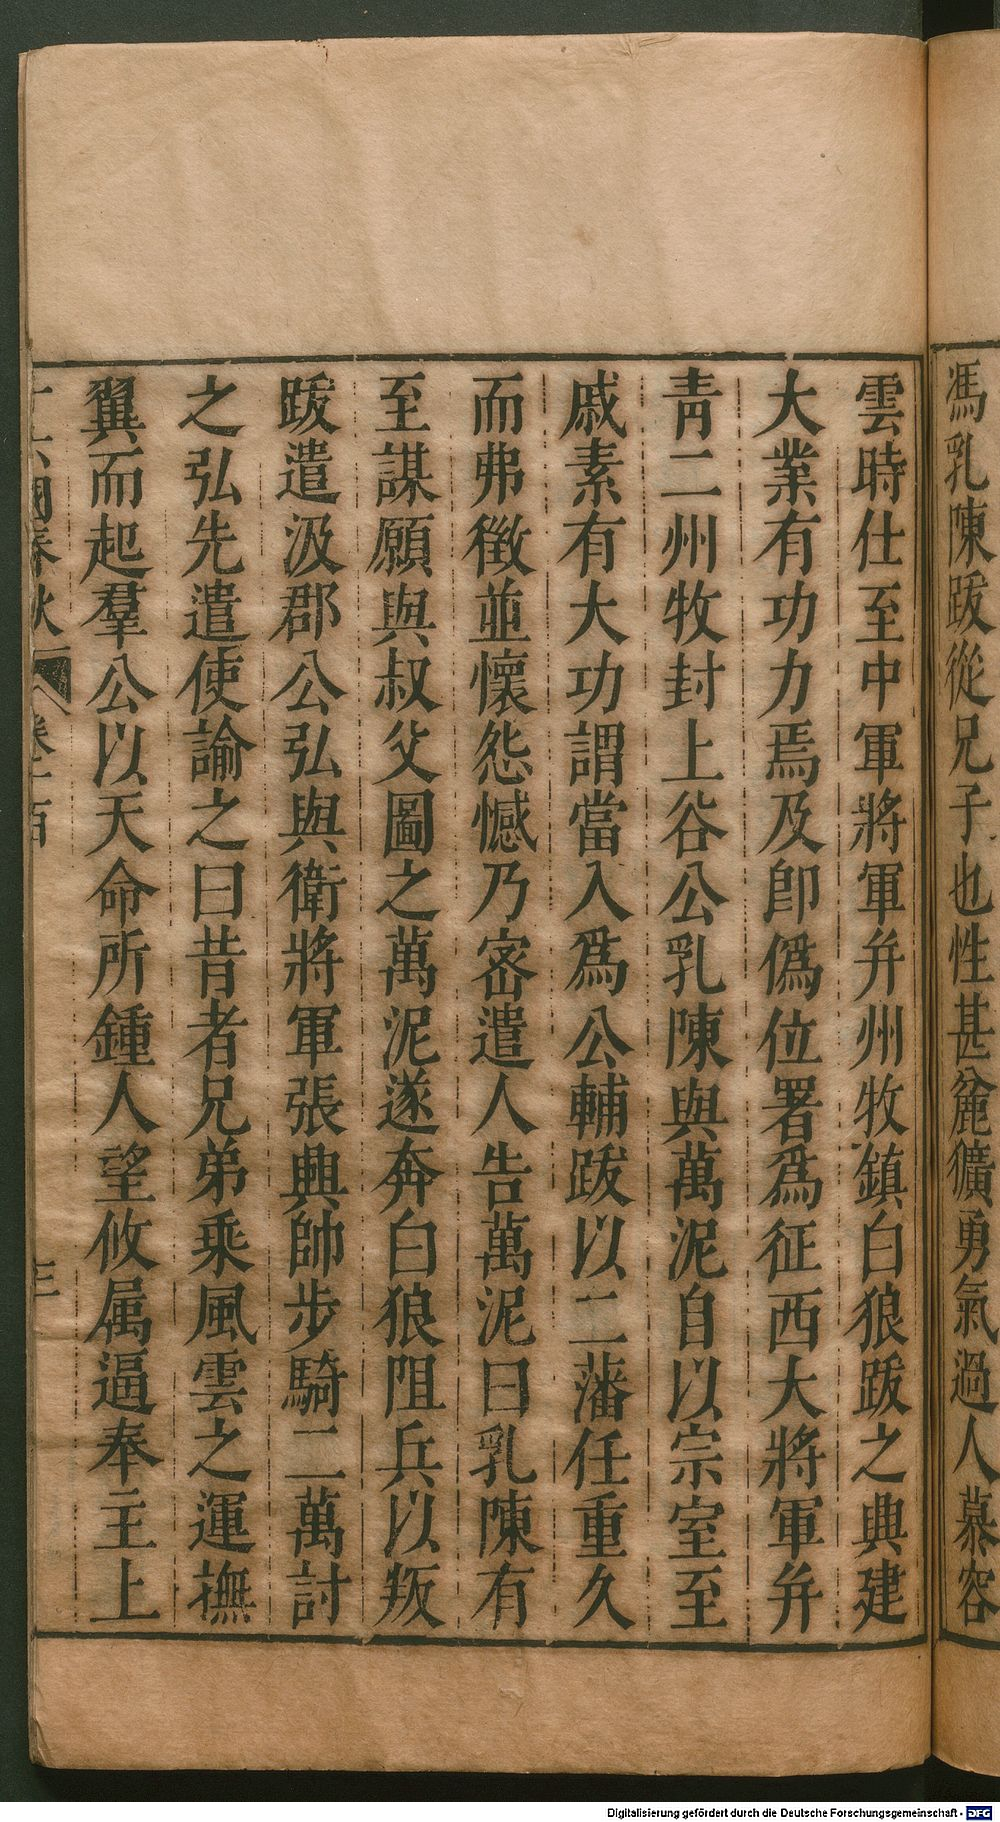 馮乳陳跋從兄子也性甚麄獷勇氣過人慕容
雲時仕至中軍將軍并州牧鎮白狼跋之典建
大業有功力焉及即僞位署爲征西大將軍并
青二州牧封上谷公乳陳與萬泥自以宗室至
戚素有大功謂當入爲公輔跋以二藩任重久
而弗徵並懷怨憾乃宻遣人告萬泥曰乳陳有
至謀願與叔父圖之萬泥遂奔白狼阻兵以叛
跋遣汲郡公弘與衛將軍張興帥步騎二萬討
之弘先遣使諭之曰昔者兄弟乘風雲之運撫
翼而起羣公以天命所鍾人望攸属逼奉主上
十六國春秋 卷一百 三
Digitalisierung gefördert durch die Deutsche Forschungsgemeinschaft - DFG